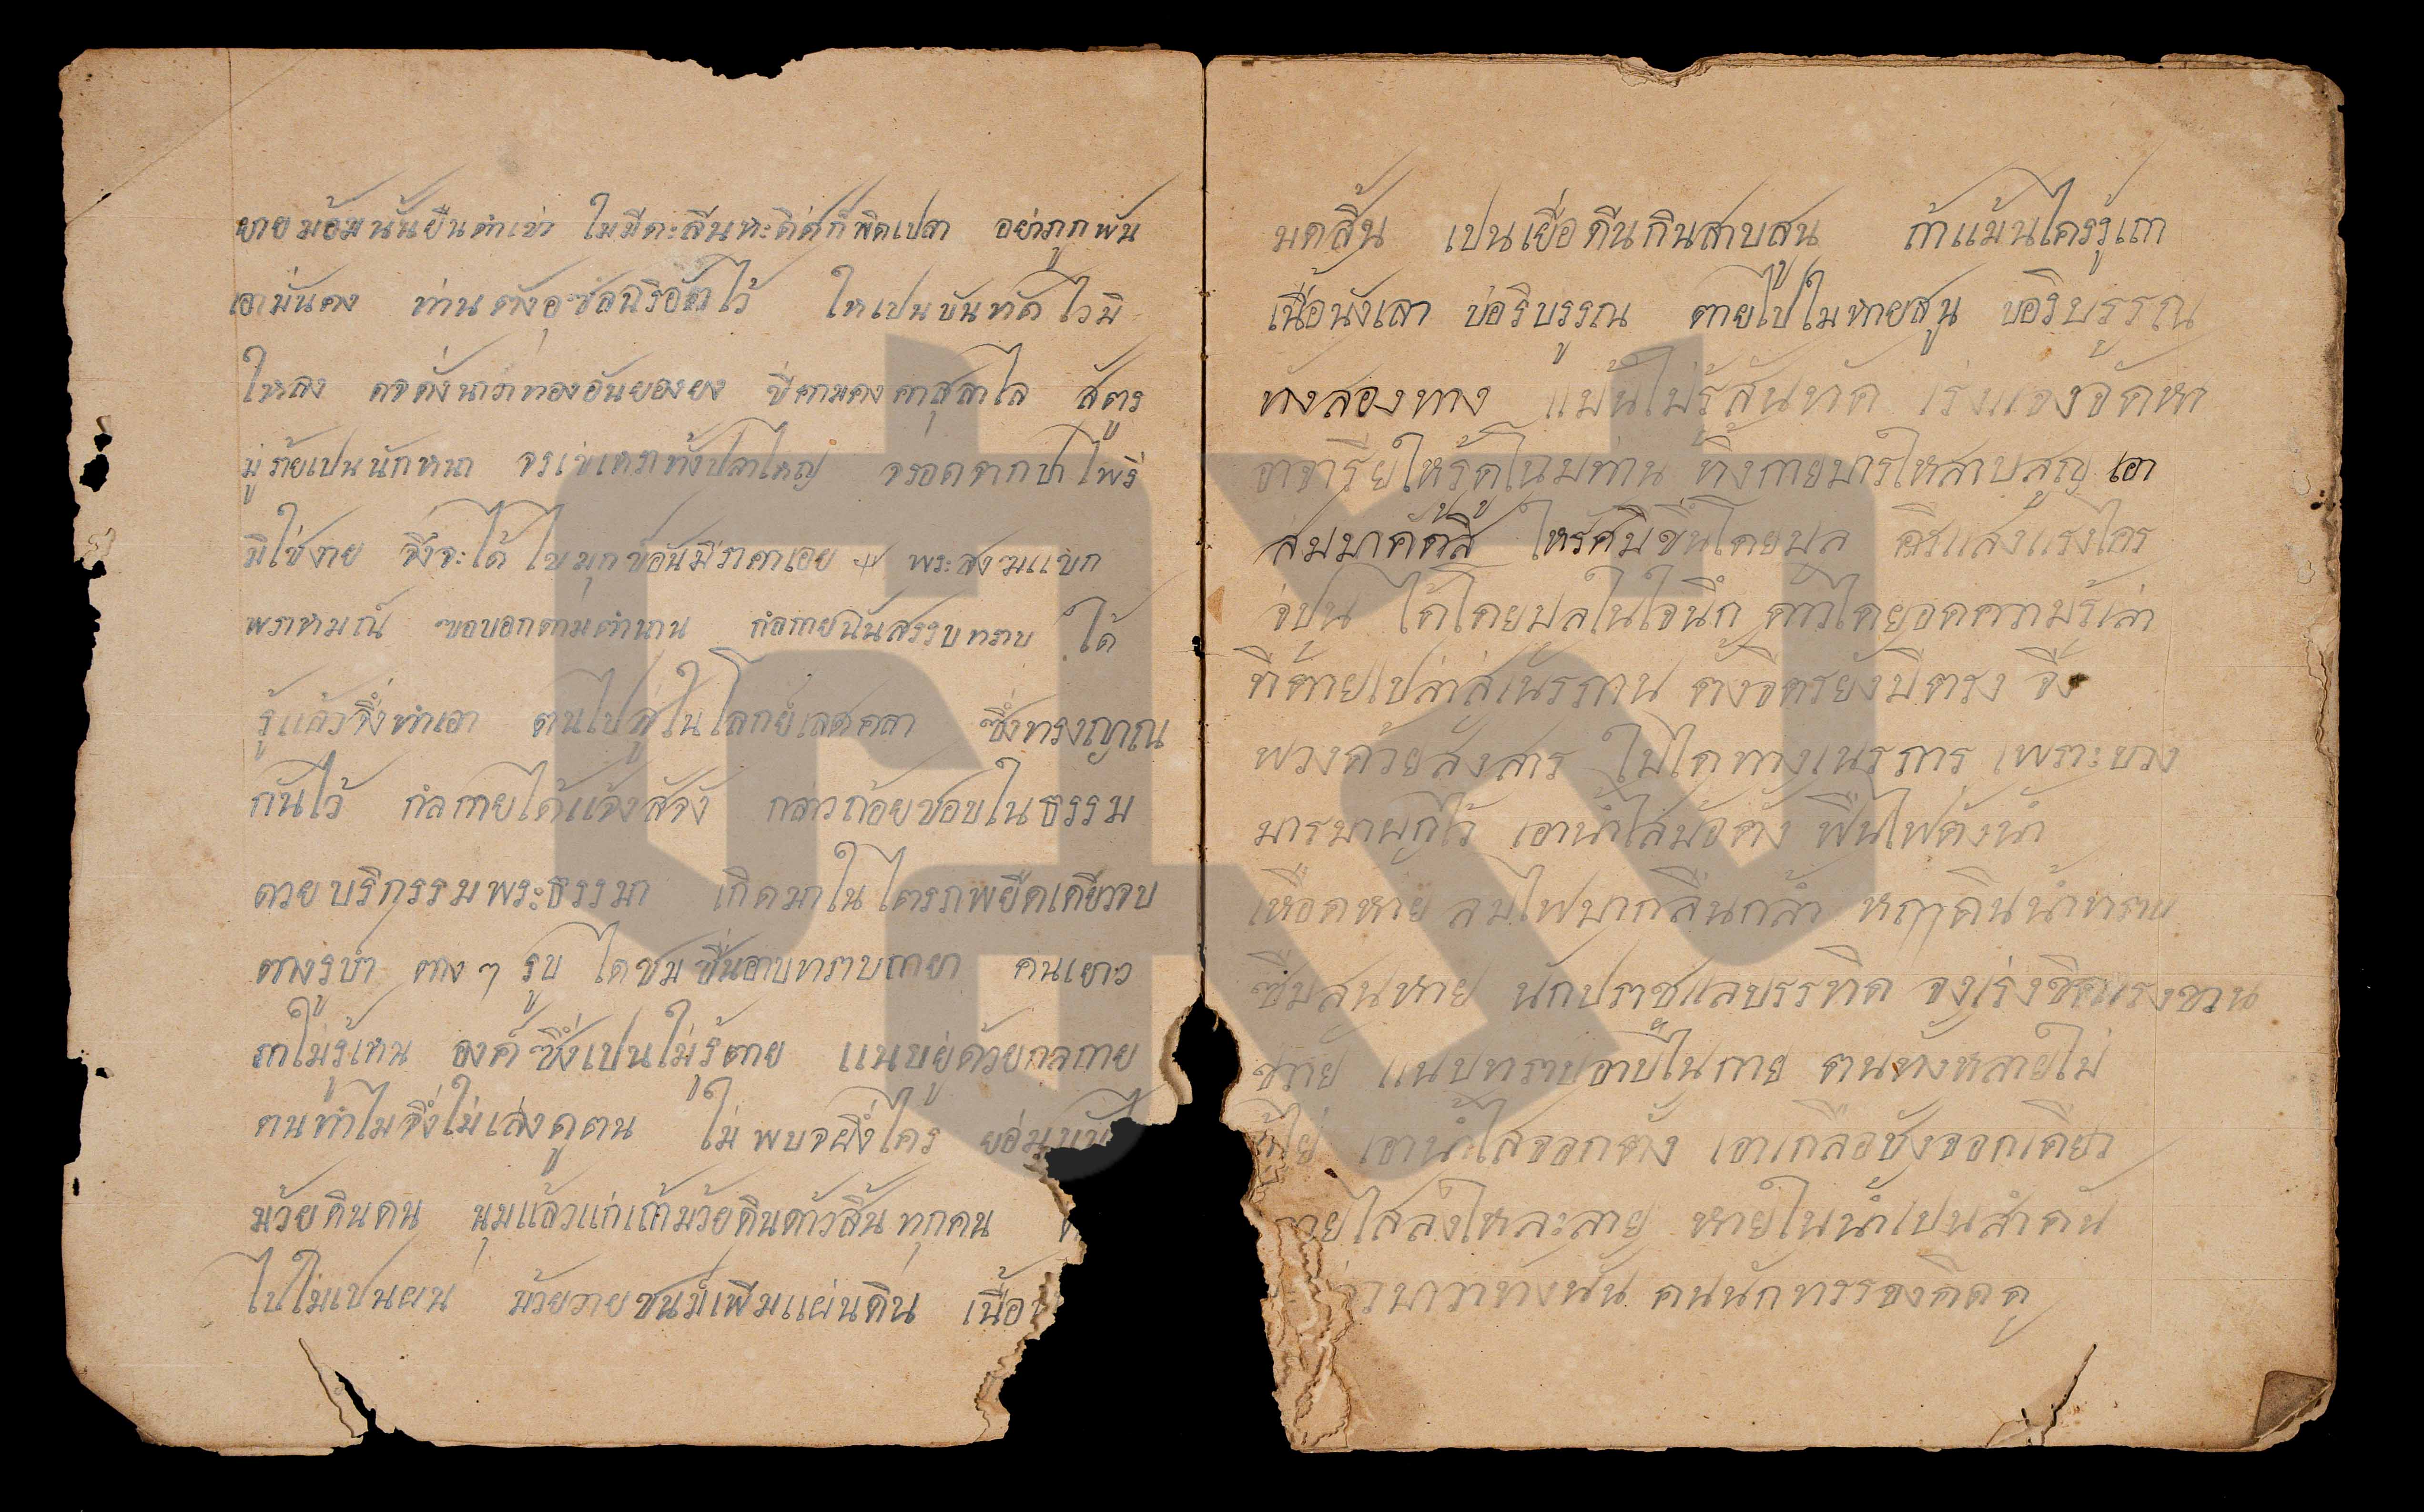 ยายม้อมนั้นยืนตำเข่า ไมมีตะลีนหะดิศก็พิดเปลา อย่าภูกพัน
เอามั่นคง ท่านตั้งอุ ไว้ ไหเปนบันทัด ไวมิ
ไหลง ดจดั่งนาวาทองอันยองยง ขี่ตามคงคาสุลาไล สัตรู
มู่ร้ายเปนนักหนา จรเข้เหราทั้งปลาไหญ่ จรอดจากปาไพรี
มิไช่งาย จึ่งจะได้ไขมุกข์อันมีราคาเอย ฯ พระสงฆแขก
พราหมณ์ ขอบอกตามตำนาน กำลกายนั้นสรรบทราบ ได้
รู้แล้วจึ่งทำเอา ตนไปสู่ไนโลกย์เลศคลา ซึ่งทรงญาณ
กันไว้ กำลกายได้แจ้งสัจัง กลาวถ้อยชอบไนธรรม
ดวยบริกรรมพระธรรมา เกิดมาไนไตรภพยืดเดียวจบ
ตางรูปา ตาง ๆ รูบ ไดชมชื่นอาบทราบกายา คนเยาว
ถาไม่รู้เหน องค์ซึ่งเปนไม่รู้ตาย แนบยู่ด้วยกลกาย
ตนทำไมจึ่งไม่เล่งดูตน ไม่พบจผึ่งไคร ย่อม
ม้วยดินดน นุมแล้วแก่เถ้าม้วยดินด้าวสิ้นทุกคน
ไปไม่เปนผน ม้วยวายชนม์เพีมแผ่นดิน เนื้อ
มดสิ้น เปนเยื่อดีนกินสาบสูน ถ้าแม้นไครรู้เถา
เนื้อนังเลา บ่อริบูรรณ ตายไปไมหายสูน บอริบูรรณ
ทังสองทาง แม้นไม่รู้สันทัด เร่งแจงจัดหา
อาจารีย์ไห้รู้ดูโฉมท่าน ทิ้งกายมารไหสาบสูญ เอา
สมมาคัดสี ไหรัศมีขึ้นโดยมูล คิรแสงแรงไคร
จ่ปูน ได้โดยมูลไนใจนึก ตัวไดยอดความรู้เล่า
ที่ตายเปล่าสู่เนรกาน ตั้งจิตรยังมิตรง จึง
พวงด้วยสังสาร ไม่ไดทางเนรการ เพราะบวง
มารมาผูกไว้ เอาน้ำไสม้อตั้ง ฟืนไฟตั้งน้ำ
เหือดหาย ลมไฟมากลืนกล้ำ หฤาดินน้ำทราบ
ซึมสูนหาย นักปราชแลบรรทิด จงเร่งขิดแรงขวน
ขวาย แนบทราบอาบไนกาย ตนทั้งหลายไม่
เอาน้ำไสจอกตั้ง เอาเกลือชั่งจอกเดียว
ไสลงไหละลาย หายไนน้ำเปนสำคัน
มาวาทังนั้น คนนักทรรจงคิดดู